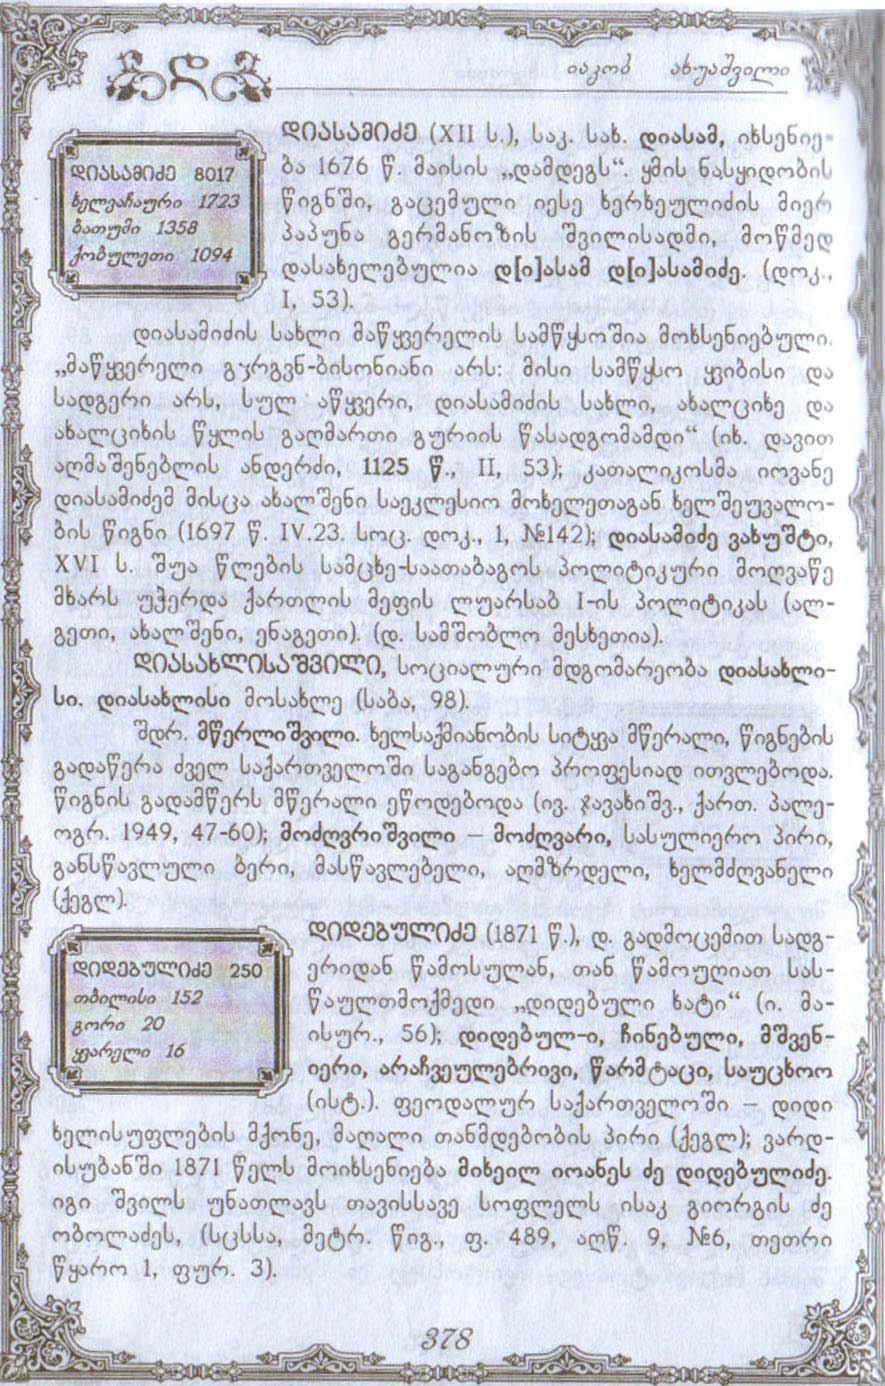 დ
იაკობ ახუაშვილი
დიასამიძე 8017
ხელვაჩაური 1723
ბათუმი 1358
ქობულეთი 1094
დიასამიძე (XII ს.), საკ. სახ. დიასამ, იხსენიე-
ბა 1676 წ. მაისის „დამდეგს“. ყმის ნასყიდობის
წიგნში, გაცემული იესე ხერხეულიძის მიერ
პაპუნა გერმანოზის შვილისადმი, მოწმედ
დასახელებულია დ[ი]ასამ დ[ი]ასამიძე. (დოკ.,
I, 53).
დიასამიძის სახლი მაწყვერელის სამწყსოშია მოხსენიებული.
„მაწყვერელი გჳრგვნ-ბისონიანი არს: მისი სამწყსო ყვიბისი და
სადგერი არს, სულ აწყვერი, დიასამიძის სახლი, ახალციხე და
ახალციხის წყლის გაღმართი გურიის წასადგომამდი“ (იხ. დავით
აღმაშენებლის ანდერძი, 1125 წ. II, 53); კათალიკოსმა იოვანე
დიასამიძემ მისცა ახალშენი საეკლესიო მოხელეთაგან ხელშეუვალო-
ბის წიგნი (1697 წ. IV.23. სოც. დოკ., 1, №142); დიასამიძე ვახუშტი,
XVI ს. შუა წლების სამცხე-საათაბაგოს პოლიტიკური მოღვაწე
მხარს უჭერდა ქართლის მეფის ლუარსაბ I-ის პოლიტიკას (ალ-
გეთი, ახალშენი, ენაგეთი). (დ. სამშობლო მესხეთია).
დიასახლისაშვილი, სოციალური მდგომარეობა დიასახლი-
სი. დიასახლისი მოსახლე (საბა, 98).
შდრ. მწერლიშვილი. ხელსაქმიანობის სიტყვა მწერალი, წიგნების
გადაწერა ძველ საქართველოში საგანგებო პროფესიად ითვლებოდა.
წიგნის გადამწერს მწერალი ეწოდებოდა (ივ. ჯავახიშვ., ქართ. პალე-
ოგრ. 1949, 47-60); მოძღვრიშვილი – მოძღვარი, სასულიერო პირი,
განსწავლული ბერი, მასწავლებელი, აღმზრდელი, ხელმძღვანელი
(ქეგლ).
დიდებულიძე 250
თბილისი 152
გორი 20
ყვარელი 16
დიდებულიძე (1871 წ.), დ. გადმოცემით სადგ-
ერიდან წამოსულან, თან წამოუღიათ სას-
წაულთმოქმედი „დიდებული ხატი“ (ი. მა-
ისურ., 56); დიდებულ-ი, ჩინებული, მშვენ-
იერი, არაჩვეულებრივი, წარმტაცი, საუცხოო
(ისტ.). ფეოდალურ საქართველოში – დიდი
ხელისუფლების მქონე, მაღალი თანმდებობის პირი (ქეგლ); ვარდ-
ისუბანში 1871 წელს მოიხსენიება მიხეილ იოანეს ძე დიდებულიძე.
იგი შვილს უნათლავს თავისსავე სოფლელს ისაკ გიორგის ძე
ობოლაძეს, (სცსსა, მეტრ. წიგ., ფ. 489, აღწ. 9, №6, თეთრი
წყარო 1, ფურ. 3).
378